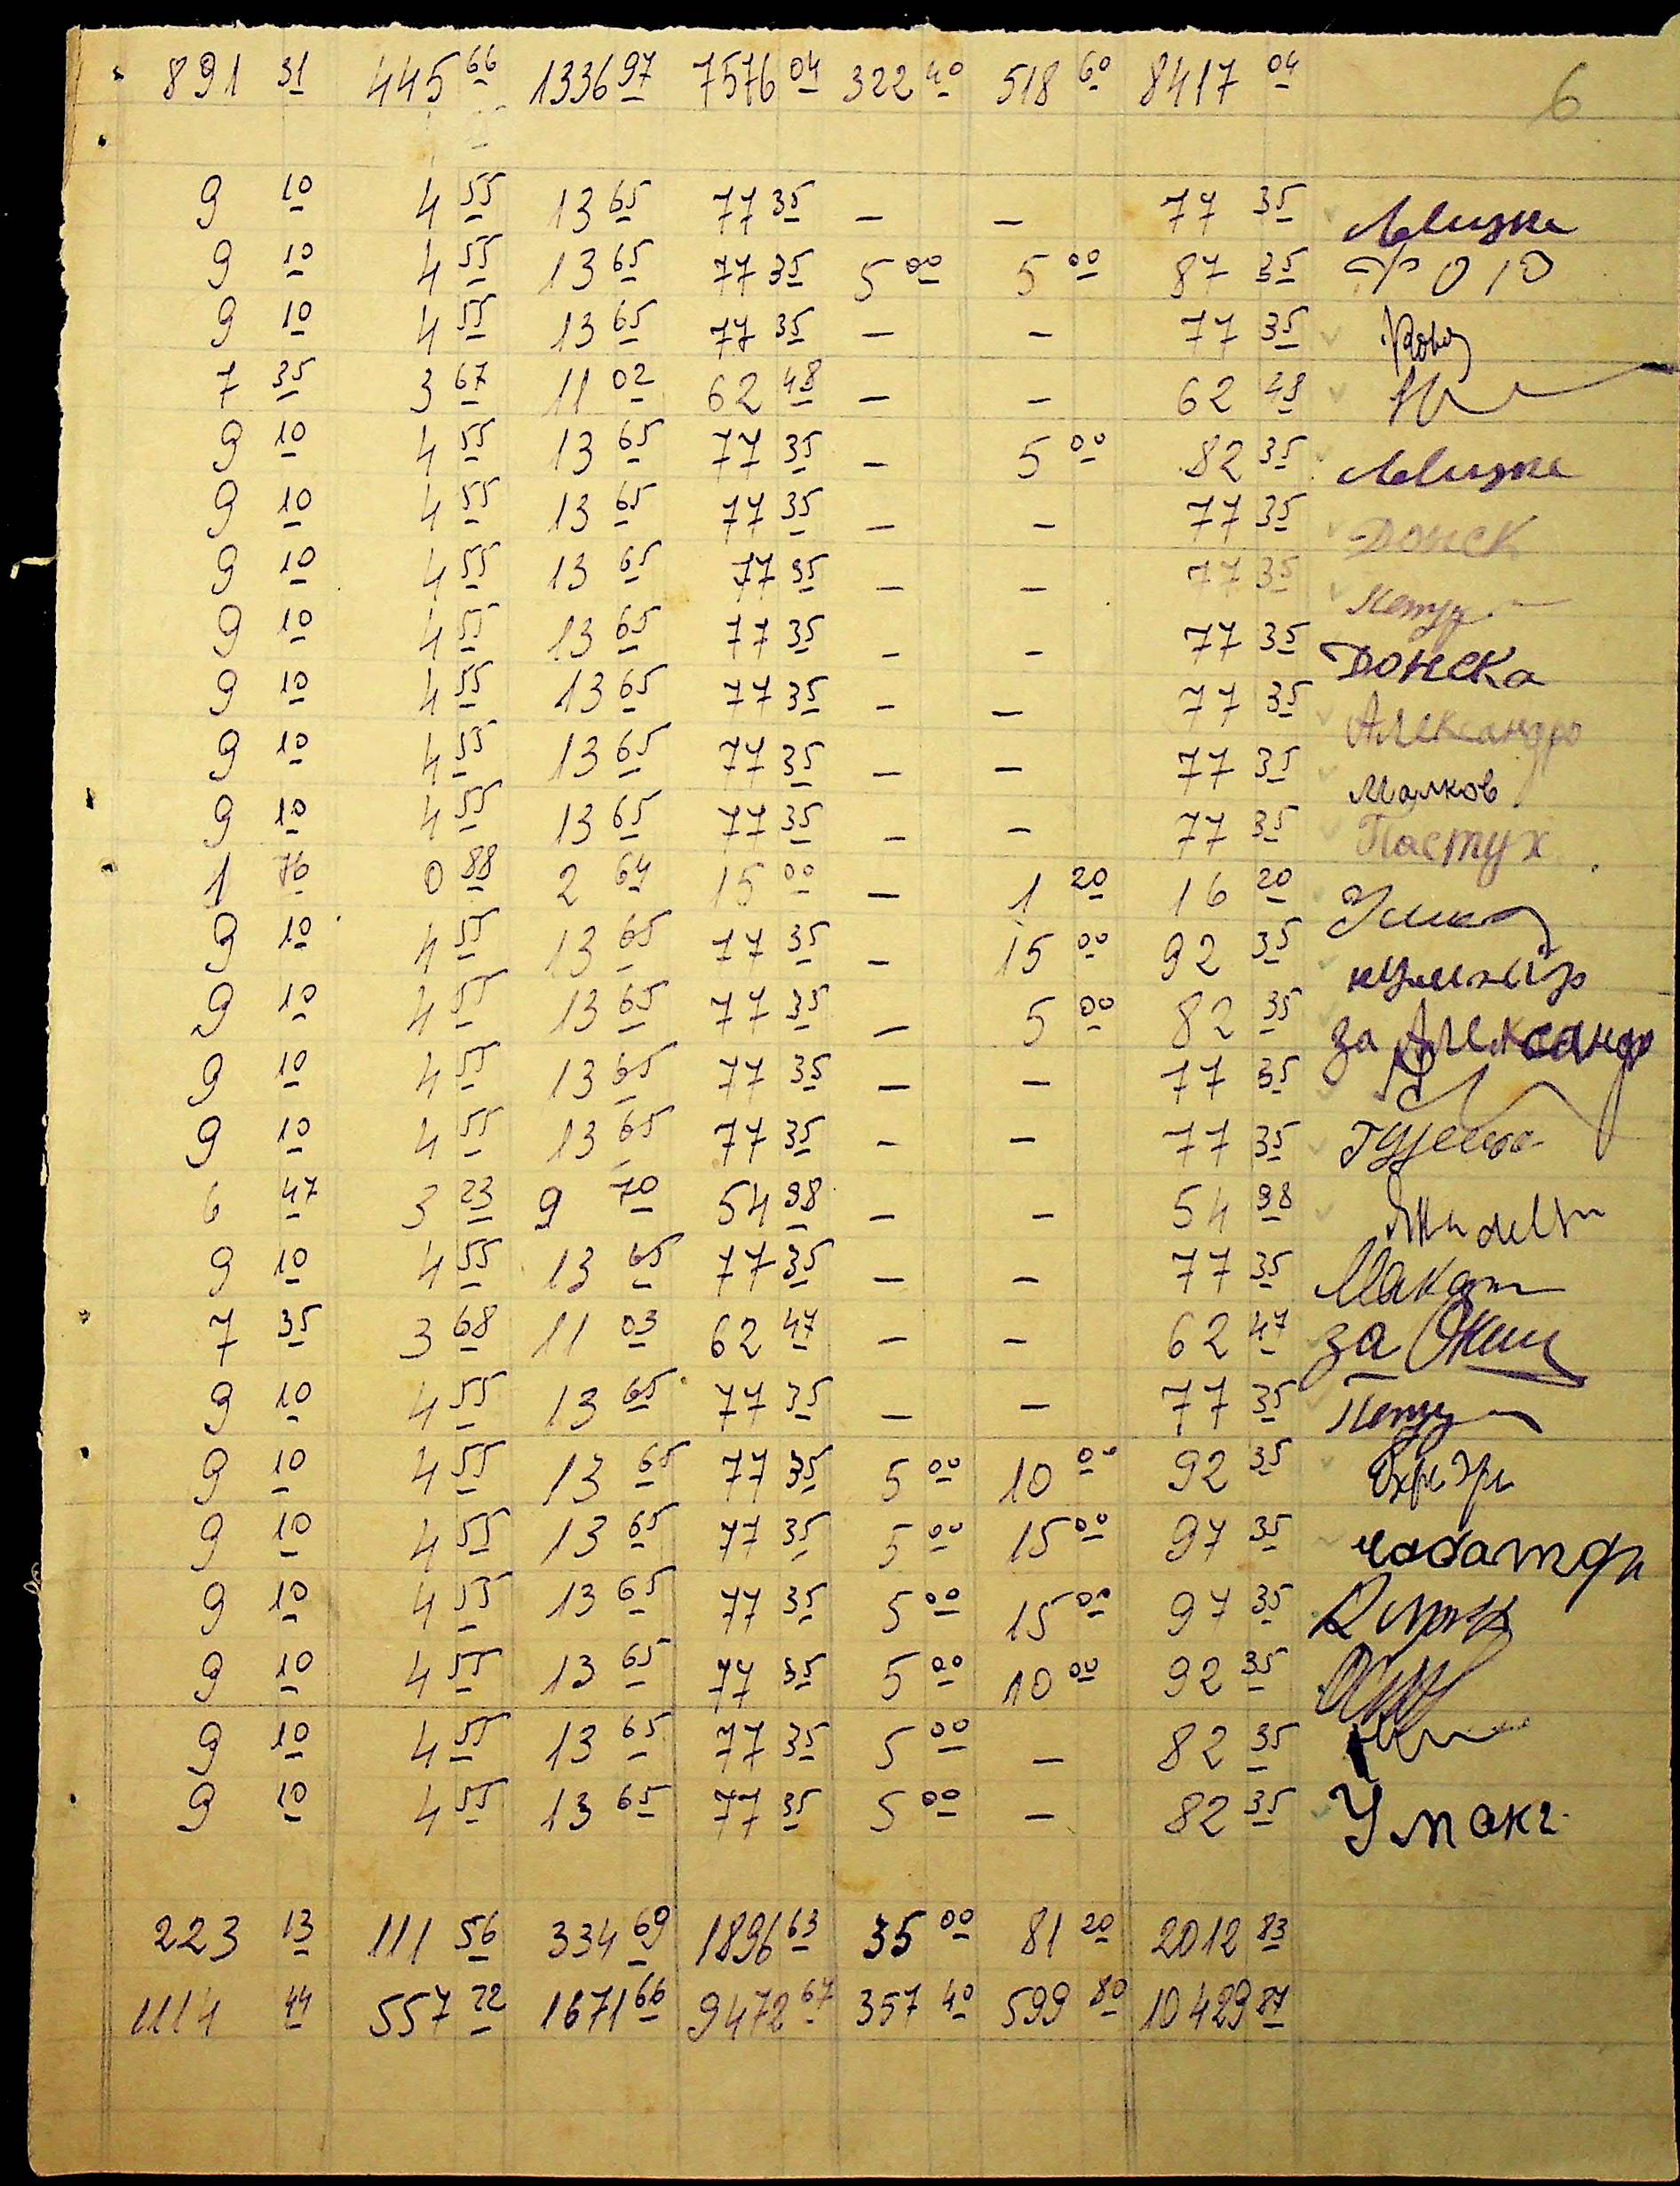 891 31 445 66 1336 97 7576 04 322 40 518 60 8417 04 6
9 10 4 55 13 65 77 35 – – 77 35
9 10 4 55 13 65 77 35 5 00 5 00 87 35
9 10 4 55 13 65 77 35 – – 77 35
7 35 3 67 11 02 62 48 – – 62 48
9 10 4 55 13 65 77 35 – 5 00 82 35
9 10 4 55 13 65 77 35 – – 77 35 Донск
9 10 4 55 13 65 77 35 – – 77 35
9 10 4 55 13 65 77 35 – – 77 35 Донска
9 10 4 55 13 65 77 35 – – 77 35 Александр
9 10 4 55 13 65 77 35 – – 77 35 Малков
9 10 4 55 13 65 77 35 – – 77 35 Пастух
1 76 0 88 2 64 15 00 – 1 20 16 20
9 10 4 55 13 65 77 35 – 15 00 92 35
9 10 4 55 13 65 77 35 – 5 00 82 35 за Александр
9 10 4 55 13 65 77 35 – – 77 35
9 10 4 55 13 65 77 35 – – 77 35
6 47 3 23 9 70 54 98 – – 54 98
9 10 4 55 13 65 77 35 – – 77 35
7 35 3 68 11 03 62 47 – – 62 47 за
9 10 4 55 13 65 77 35 – – 77 35
9 10 4 55 13 65 77 35 5 00 10 00 92 35
9 10 4 55 13 65 77 35 5 00 15 00 97 35
9 10 4 55 13 65 77 35 5 00 15 00 97 35
9 10 4 55 13 65 77 35 5 00 10 00 92 35
9 10 4 55 13 65 77 35 5 00 – 82 35
9 10 4 55 13 65 77 35 5 00 – 82 35
223 13 111 56 334 69 1896 63 35 00 81 20 2012 83
1114 44 557 22 1671 66 9472 67 357 40 599 80 10429 87